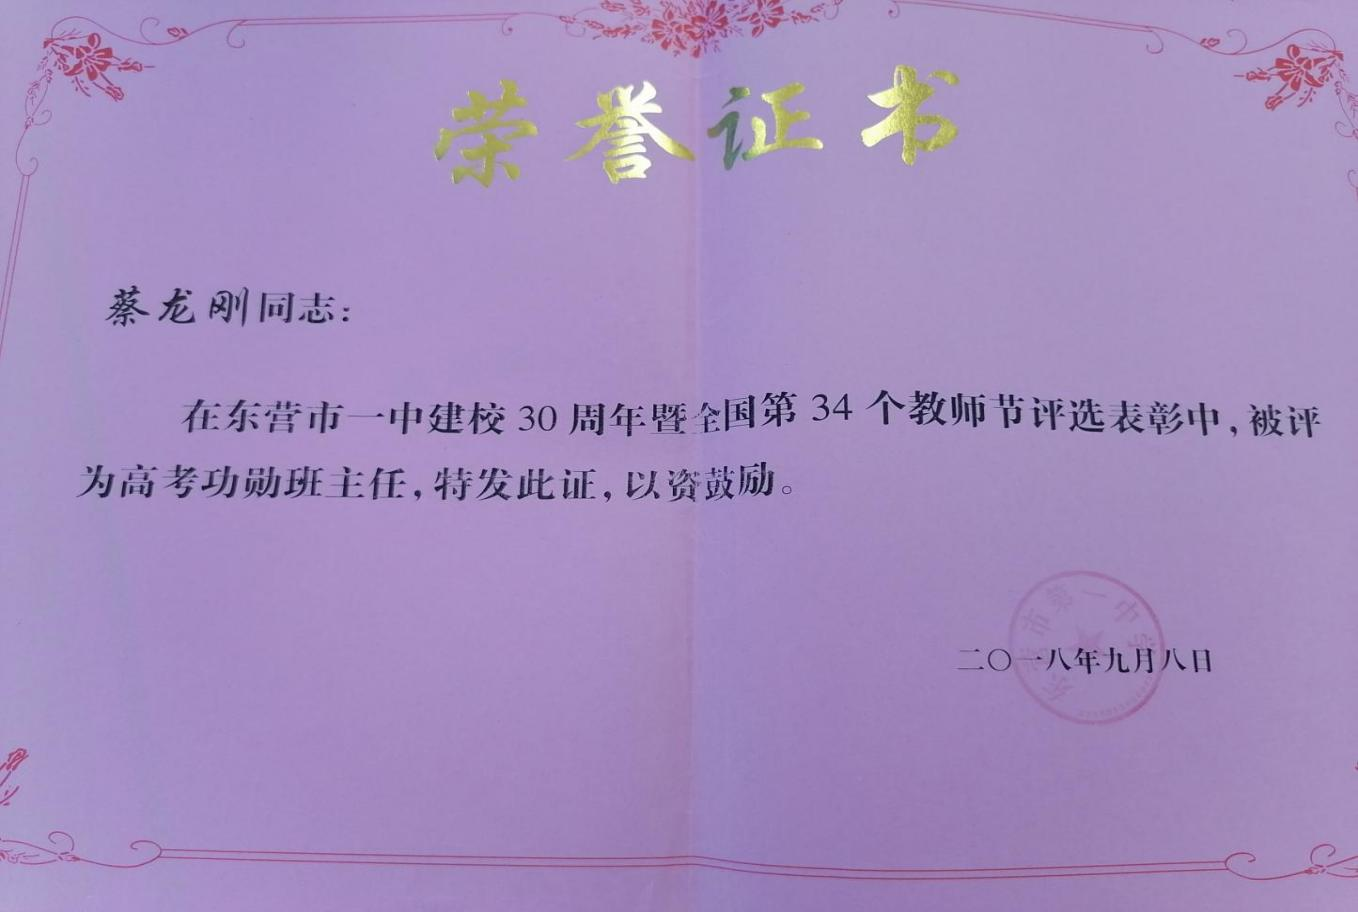 荣誉证书
蔡龙刚同志：
在东营市一中建校30周年暨全国第34个教师节评选表彰中，被评
为高考功勋班主任，特发此证，以资鼓励。
东营市第一中学
二〇一八年九月八日